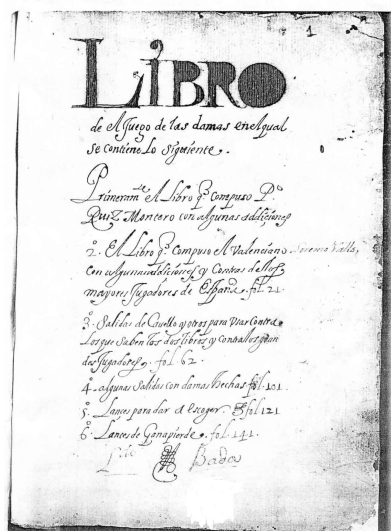 1
LIBRO
de el Juego de las damas en elqual
se contiene Lo siguiente.
Primeram.te el Libro q.e compuso P.o
Ruiz Montero con algunas addiçiones
2.o El Libro q.e compuso el Valençiano
con algunas addiciones y Contras de los
mayores Jugadores de España. fol. 21.
3.o Salidas de Cauello y otros para Vsar Contra
Los que saben los dos libros y contra los gran
des Jugadores. fol. 62.
4.o algunas Salidas con damas hechas fol. 101.
5.o Lançes para dar a escoger fol 121
6.o Lançes de Ganapierde. fol. 141.